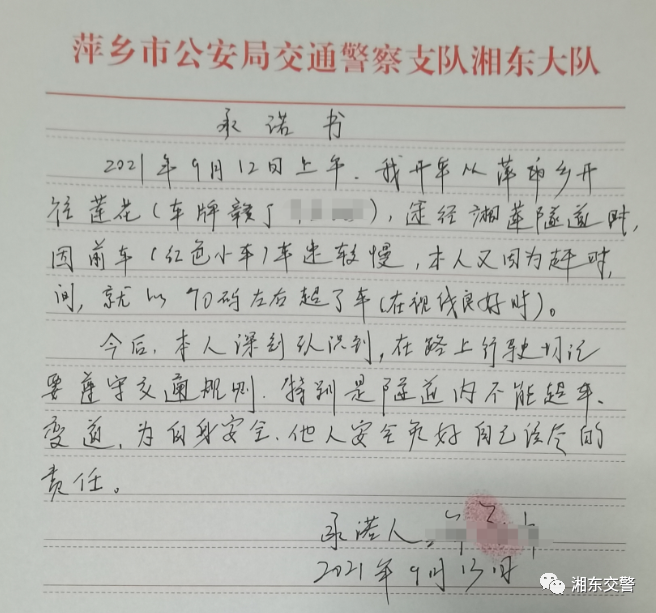 萍乡市公安局交通警察支队湘东大队
承诺书
2021年9月12日上午，我开车从萍乡开
往莲花（车牌赣J），途经湘莲隧道时，
因前车（红色小车）车速较慢，本人又因为赶时
间，就以70码左右超了车（在视线良好时）。
今后，本人深刻认识到，在路上行驶切记
要遵守交通规则，特别是隧道内不能超车、
变道，为自身安全、他人安全负好自己该尽的
责任。
承诺人：
2021年9月13日
湘东交警